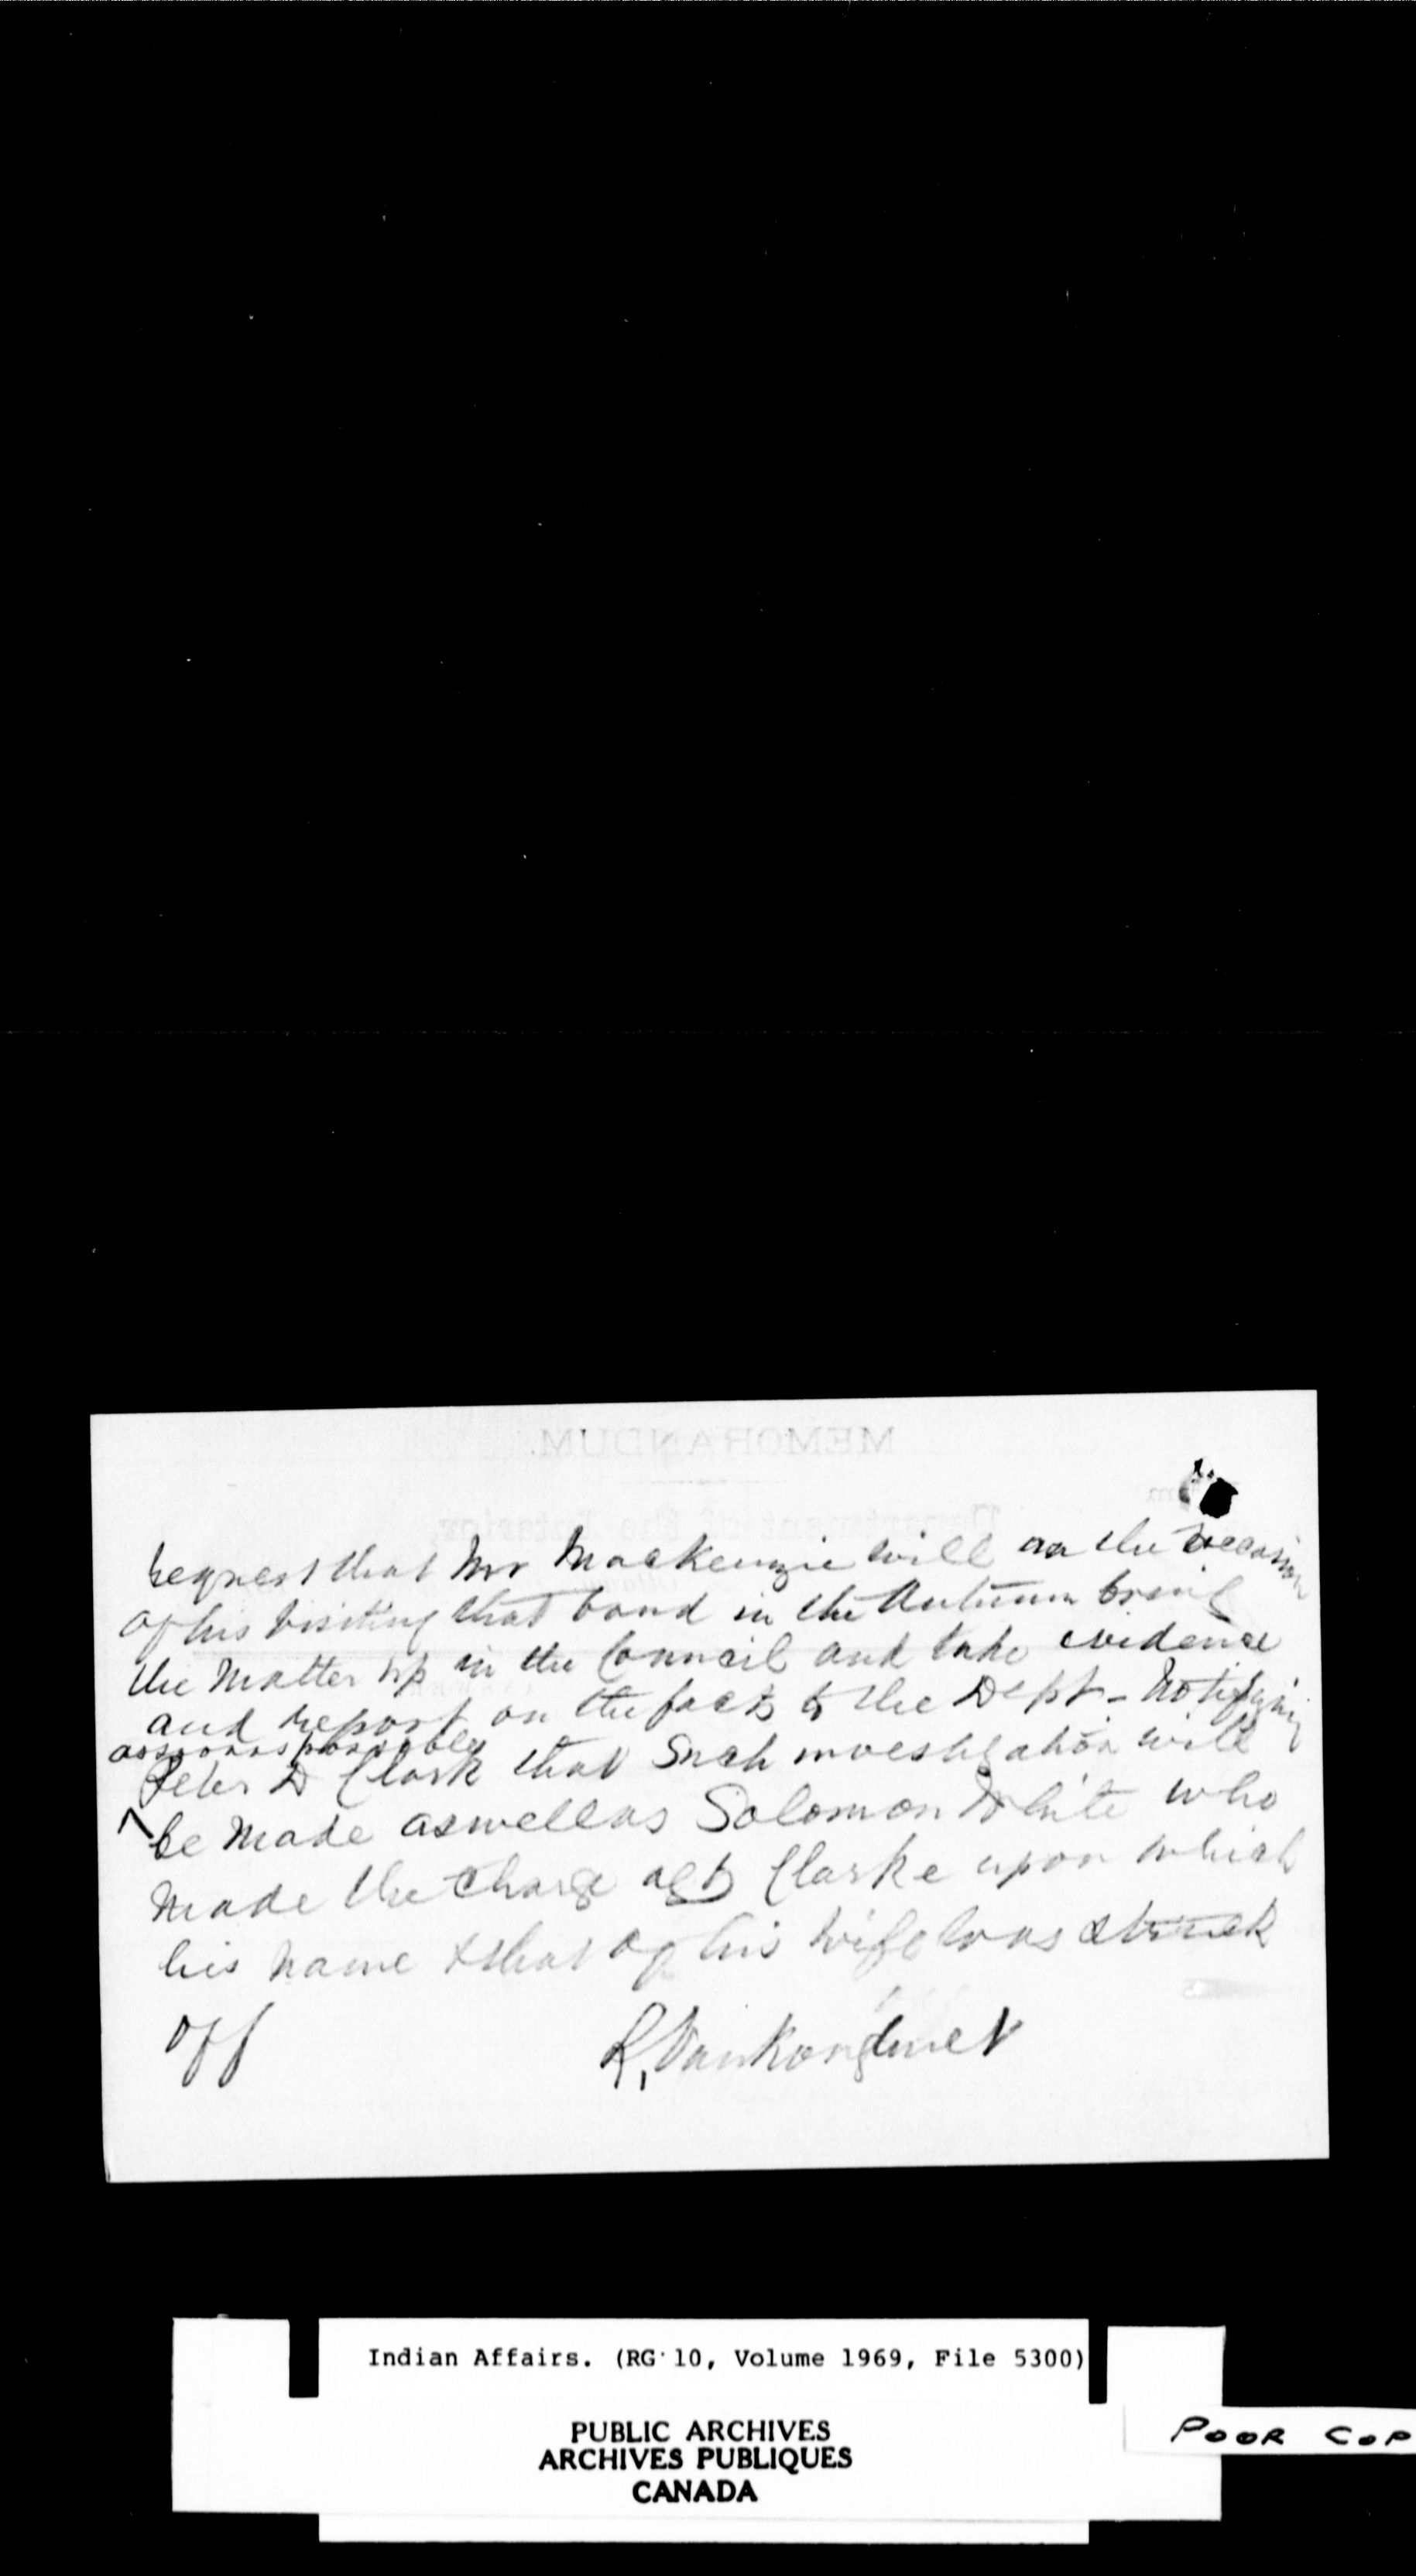 MEMORANDUM.
Department of the Interior,
request that Mr Mackenzie will on the occasion
of his visiting that band in the Autumn bring
the matter up in the Council and take evidence
and report on the facts to the Dept - Notifying
as soon as possible
Peter D Clark that such investigation will
be made as well as Solomon White who
made the charge agt Clarke upon which
his name & that of his wife was struck
off
R, VanKoughnet
Indian Affairs. (RG 10, Volume 1969, File 5300)
PUBLIC ARCHIVES
ARCHIVES PUBLIQUES
CANADA
POOR COP